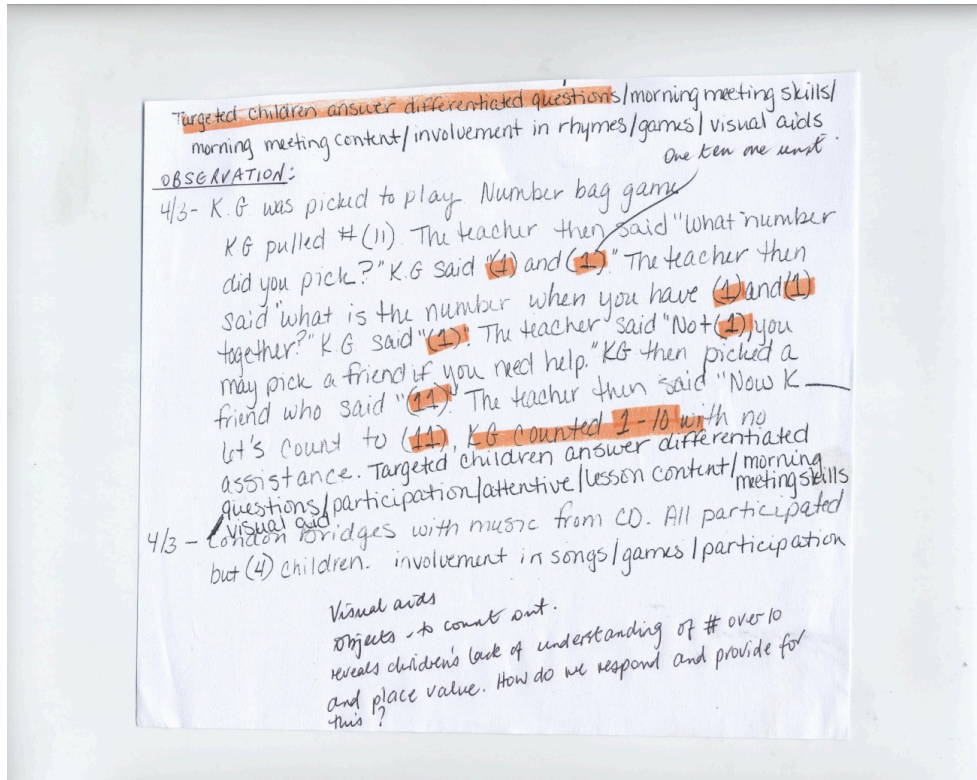 Targeted children answer differentiated questions/morning meeting skills/
morning meeting content/involvement in rhymes/games/visual aids
One ten one unit.
OBSERVATION:
4/3- K.G. was picked to play Number bag game
KG pulled #(11). The teacher then said "What number
did you pick?" K.G said "(1) and (1)." The teacher then
said "what is the number when you have (1) and (1)
together?" K.G. said "(1)". The teacher said "Not (1), you
may pick a friend if you need help." KG then picked a
friend who said "(11)". The teacher then said "Now K
let's count to (11). KG counted 1-10 with no
assistance. Targeted children answer differentiated
questions/participation/attentive/lesson content/morning
meeting skills
/visual aid
4/3 - London Bridges with music from CD. All participated
but (4) children. involvement in songs/games/participation
Visual aids
objects - to count out.
reveals children's lack of understanding of # over 10
and place value. How do we respond and provide for
this?